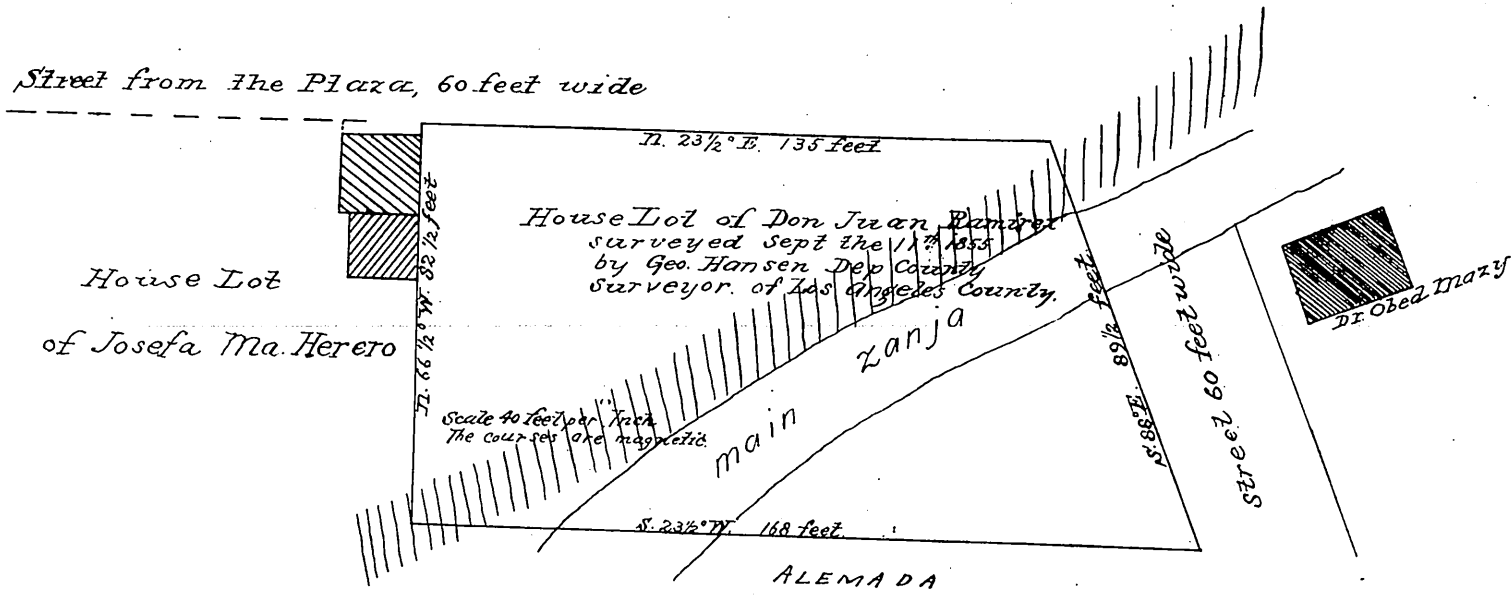 Street from the Plaza, 60 feet wide
N. 23½° E. 135 feet
N. 66½° W. 82½ feet
House Lot of Don Juan Ramirez
surveyed Sept the 11th 1855
by Geo. Hansen Dep County
Surveyor. of Los Angeles County.
House Lot
of Josefa Ma. Herero
Scale 40 feet per Inch
The courses are magnetic.
main zanja
S. 88° E. 89½ feet
Street 60 feet wide
Dr. Obed Mazy
S. 23½° W. 168 feet.
ALEMADA